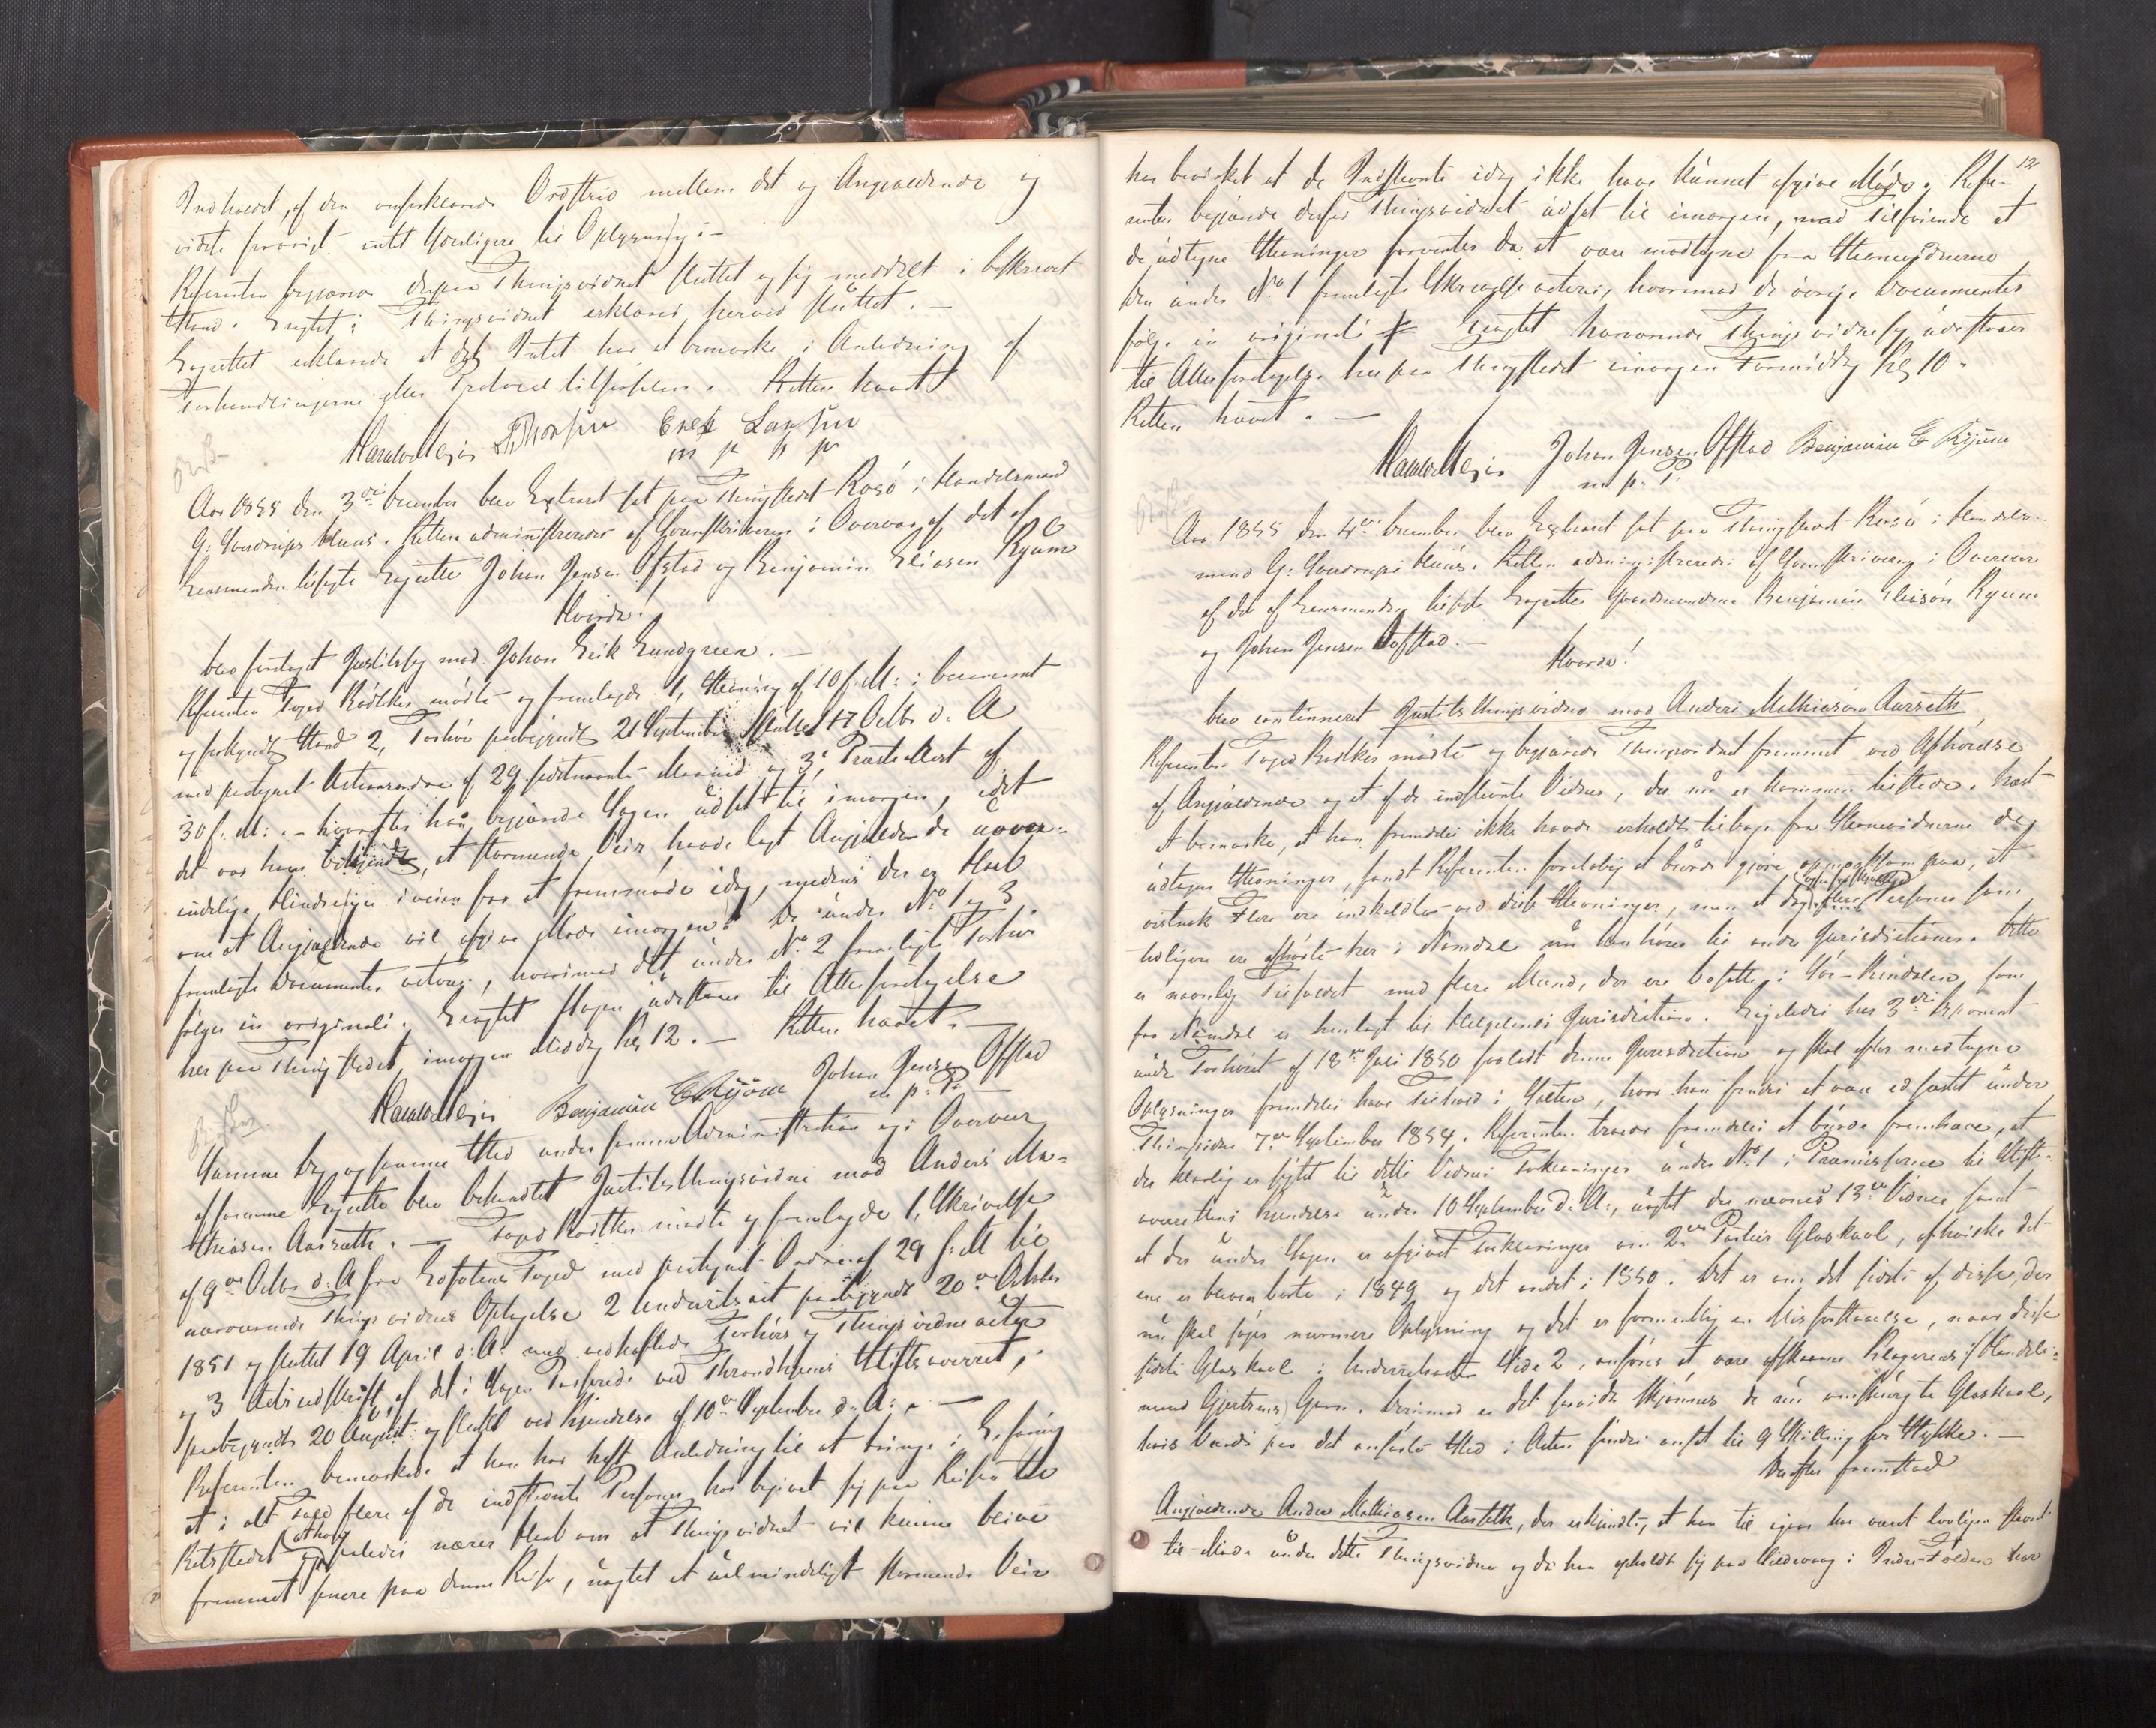 Indholdet, af den omforklarede Ordstrid mellem det og Angjældende og
vidste forøvrigt intet Yderligere til Oplysning.
Referenten begjærede derpaa Thingsvidnet sluttet og sig meddeelt i beskreven
Stand. Eragtet: Thingsvidnet erklæres herved sluttet. —
Lagrettet erklærede at det Intet har at bemærke i Anledning af
Forhandlingerne eller Protocol tilførselen. Retten hævet
Erek Larsen
m p p
Aar 1855 den 3die December blev Extraret sat paa Thingstedet Rosö i Handelsmand
G: Sverdrups Huus. Retten administreredes af Sorenskriveren i Overvær af det af
Lensmanden tilsagte Lagrette Johan Jensen Ofstad og Benjamin Eliasen Ryum
Hvorda!
blev foretaget Justitssag mod Johan Erik Lundgreen. —
Referenten Foged Rodtkes mødte og fremlagde 1, Stævning af 10 f. M: i bevaret
og forkyndt Stand 2, Forhör paabegyndt 21 September sluttet 17 Octbr d. A
med paategnet Actionsordre af 29 sidstnævnte Maaned og 3, Præsteattest af
30 f. M: — hvorefter han begjærede Sagen udsat til imorgen, idet
det var ham bekjendt, at stormende Veir havde lagt Angjældende uover-
vindelige Hindringer iveien for at fremmøde idag, medens der er Haab
om at Angjældende vil afgive Møde imorgen. De under No 1 og 3
fremlagte Documenter vedtoges, hvorimod det under No 2 fremlagte Forhör
følger in originali. Eragtet: Sagen udsættes til Atterforetagelse
her paa Thingstedet imorgen Middag Kl 12. — Retten hævet. —
Benjamin E Ryum Johan Jensen Ofstad
m p. P.
Samme Dag og samme Sted under samme Administration og i Overvær
af samme Lagrette blev behandlet Justits Thingsvidne mod Anders Ma-
thiasen Aarsæth. — Foged Rodtkes mødte og fremlagde 1, Skrivelse
af 9de Octbr d. A fra Lofotens Foged med paategnet Ordre af 29 f: M til
nærværende Thingsvidnes Optagelse 2 Underretsact paabegyndt 20de Octbr
1851 og sluttet 19 April d: A. med vedheftede Forhörs og Thingsvidne acter
og 3 Actsudskrift af det i Sagen Passerede ved Throndhjems Stiftsoverret,
paabegyndt 20 August og sluttet ved Kjendelse af 10de September d. A: . —
Referenten bemærkede at han har havt Anledning til at bringe i Erfaring
at i alt Fald flere af de indstevnte Personer har begivet sig paa Reise til
Retsstedet og saaledes nærer Haab om at Thingsvidnet vil kunne blive
fremmet senere paa denne Reise, uagtet et ualmindeligt stormende Veir
12
har bevirket at de Indstevnte idag ikke have kunnet afgive Møde. Refe-
renten begjærede derfor Thingsvidnet udsat til imorgen, med Tilføiende at
de udtagne Stevninger forventes da at være modtagne fra Stevnevidnerne
Den under No 1 fremlagte Skrivelse vedtoges, hvorimod de øvrige Documenter
følge in originali Eragtet Nærværende Thingsvidnesag udsættes
til Atterforetagelse her paa Thingstedet imorgen Formiddag Kl 10.
Retten hævet. —
Johan Jensen Ofstad Benjamin E Ryum
m p. P.
Aar 1855 den 4de December blev Extraret sat paa Thingstedet Rosö i Handels-
mand G: Sverdrups Huus. Retten administreredes af Sorenskriveren i Overvær
af det af Lensmanden tilsagte Lagrette Gaardmændene Benjamin Eliasön Ryum
og Johan Jensen Oofstad. —
Hvorda!
blev continueret Justits Thingsvidne mod Anders Mathiasen Aarsæth
Referenten Foged Rodtkes mødte og begjærede Thingsvidnet fremmet ved Afhørelse
af Angjældende og et af de indstevnte Vidner, der nu er kommen tilstede.
At bemærke, at han fremdeles ikke havde erholdt tilbage fra Stevnevidnerne de
udtagne Stevninger, fandt Referenten foreløbig at burde gjøre opmærksom paa, at
vistnok Flere ere indkaldte ved disse Stevninger, men at dog flere Personer som
tidligere ere afhørte her i Namdal nu henhøre til andre Jurisdictioner. Dette
er navnlig Tilfældet med flere Mænd, der ere bosatte i Sör-Hindalen, som
fra Namdal er henlagt til Helgelands Jurisdiction. Ligeledes har 3die Deponent
under Forhöret af 18de Juli 1850 forladt denne Jurisdiction og skal efter modtagne
Oplysninger fremdeles have Tilhold i Salten, hvor han findes at være edfæstet under
Thingsvidne 7de September 1854. Referenten troede fremdeles at burde fremhæve, at
der klarlig er sigtet til dette Vidnes Forklaringer under No 1 i Præmisserne til Stifts-
overrettens Kjendelse under 10 September d. A:, uagtet der nævnes 13de Vidne samt
at der under Sagen er afgivet Forklaringer om 2de Partier Glaskavl, afhvilke det
ene er blevet borte i 1849 og det andet i 1850. Det er om det sidste af disse, der
nu skal søges nærmere Oplysning og det er formentlig en Misforstaaelse, naar disse
sidste Glaskavl i Underretsacten Side 2, anføres at være afskaarne Klagerens (Handels-
mand Gjertsens) Garn. Derimod er det forsaavidt skjønnes de nu omspurgte Glaskavl,
hvis Værdi paa det anførte Sted i Acten findes ansat til 9 Skilling pr Stykke. —
Derefter fremstod
Angjældende Anders Mathiasen Aarseth, der erkjendte, at han til igaar har været lovligen stevnet
til Møde under dette Thingsvidne og da han opholdt sig paa Sildevaag i Indre-Folden har